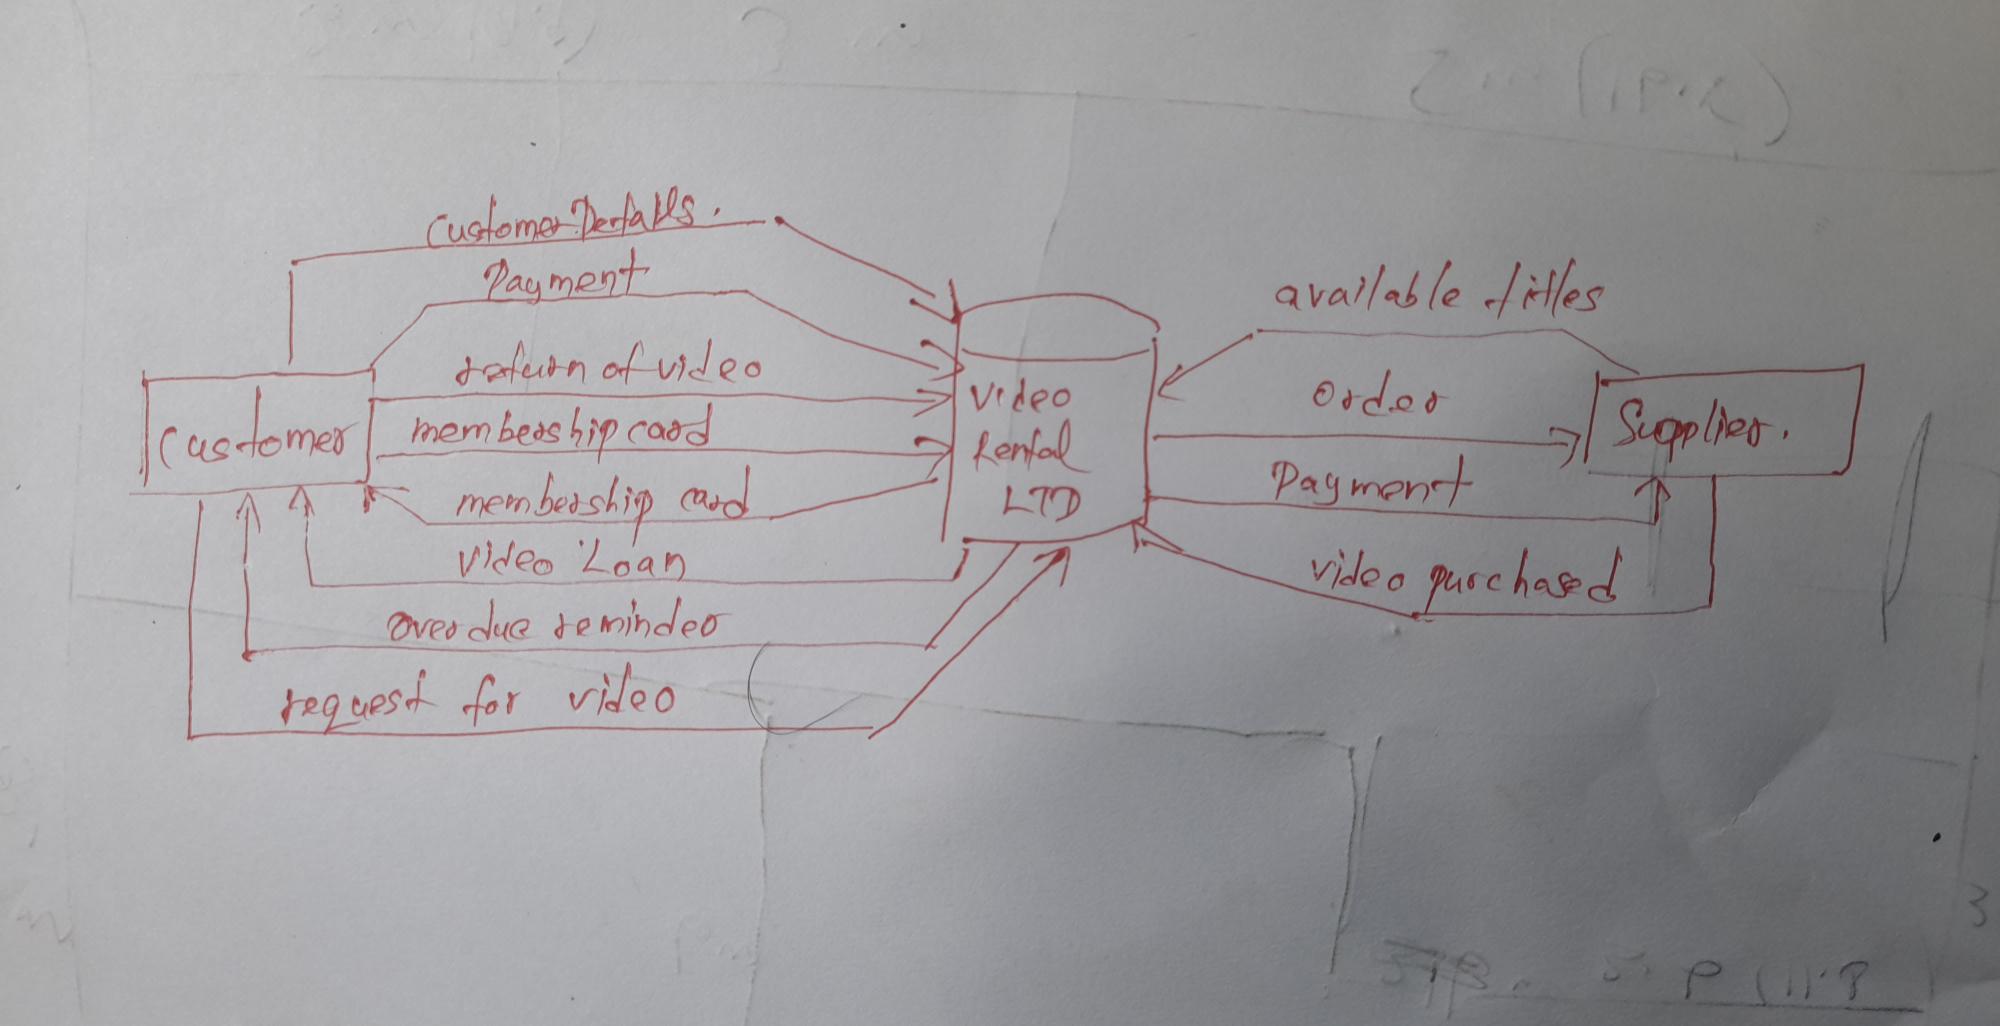 Customer Details.
Payment
return of video
membership card
membership card
video Loan
overdue reminder
request for video
Customer
Video
Rental
LTD
available titles
order
Payment
video purchased
Supplier.